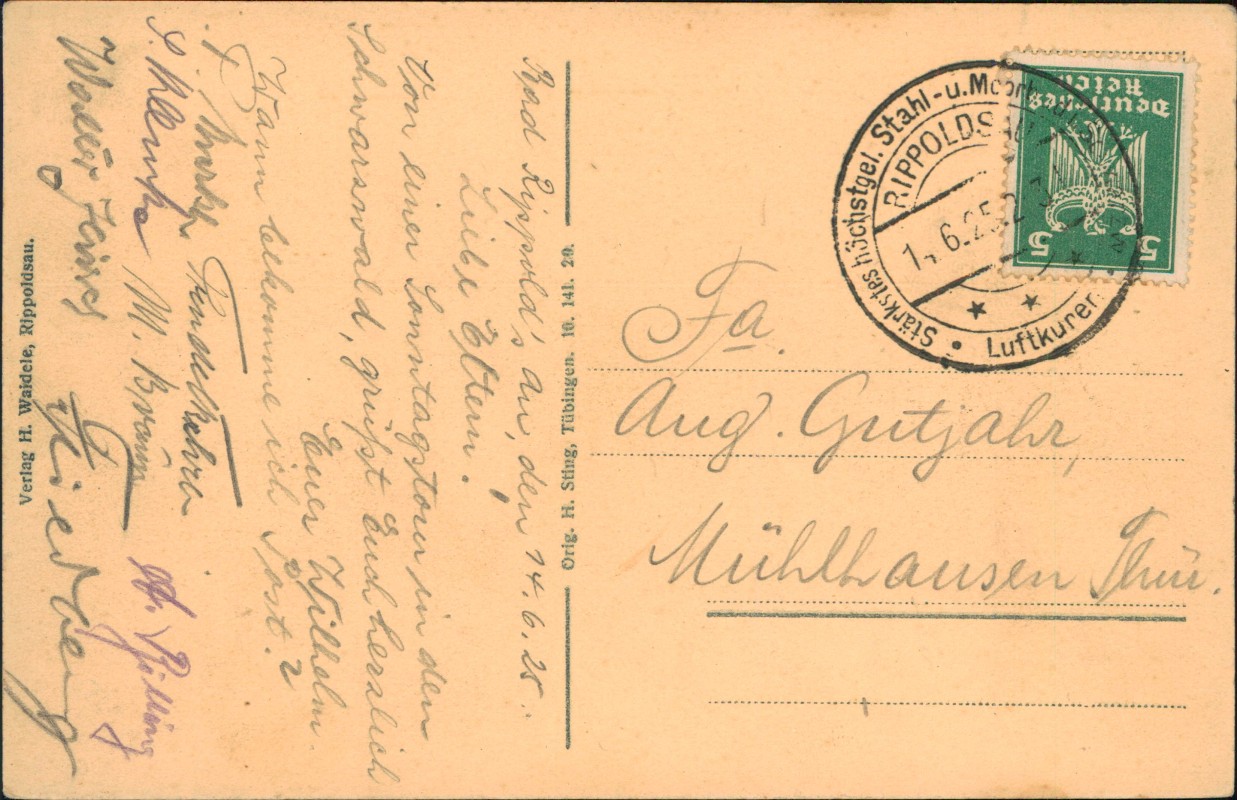 Bad Rippold's au, den 14.6.25.
Liebe Eltern!
Von einer Sonntagstour in den
Schwarzwald, grüßt Euch herzlich
Euer Wilhelm.
Wann bekomme ich Post?
M. Braun
Walter
Orig. H. Sting, Tübingen. 10. 141. 20.
Verlag H. Waidele, Rippoldsau.
Deutsches
Reich
5 5
Stärkstes höchstgel. Stahl-u. Moorb
RIPPOLDSAU
14.6.25.2-3
Luftkuror
Fa.
Aug. Gutjahr,
Mühlhausen Thür.